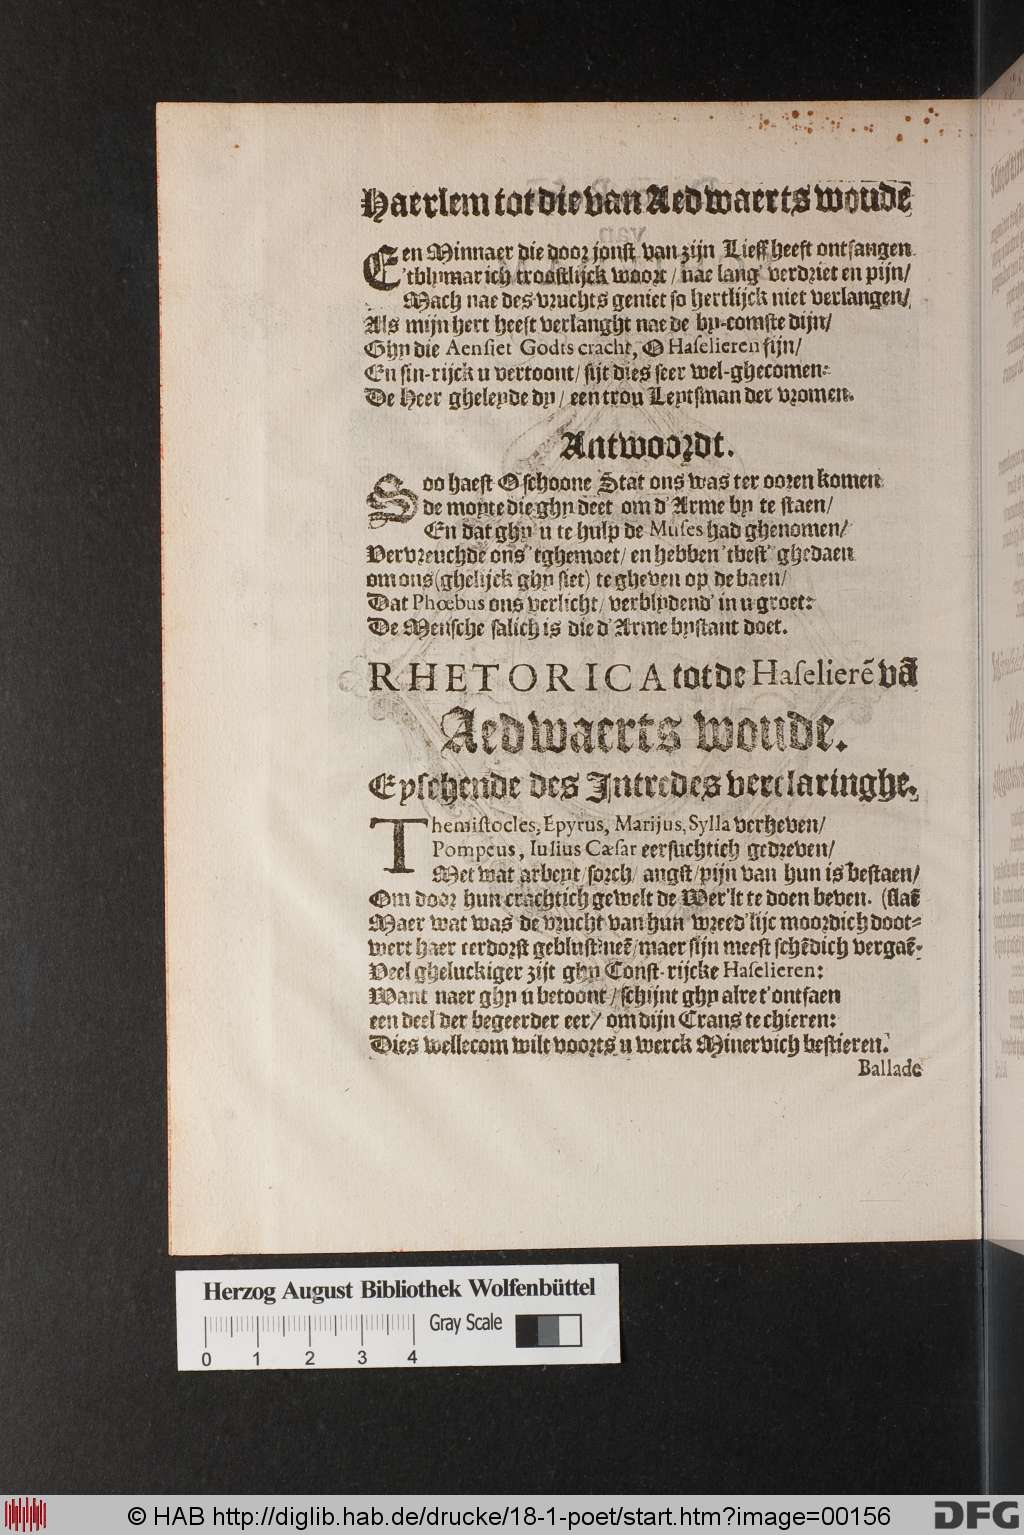 Haerlem tot die van Aedwaerts woudē
Een Minnaer die door jonst van zijn Lieff heeft ontfangen
'tblymar ich troostlijck woort / nae lang' verdriet en pijn/
Mach nae des vruchts geniet so hertlijck niet verlangen/
Als mijn hert heeft verlanght nae de by-comste dijn/
Ghy die Aensiet Godts cracht, O Haselieren fijn/
En sin-rijck u vertoont/ sijt dies seer wel-ghecomen:
De Heer gheleyde dy / een trou Leytsman der vromen.
Antwoordt.
Soo haest O schoone Stat ons was ter ooren komen
de moyte die ghy deet om d'Arme by te staen/
En dat ghy u te hulp de Muses had ghenomen/
Vervreuchde ons 'tghemoet/ en hebben 'tbest' ghedaen
om ons (ghelijck ghy siet) te gheven op de baen/
Dat Phœbus ons verlicht/ verblydend' in u groet:
De Mensche salich is die d'Arme bystant doet.
RHETORICA tot de Haselierē vā
Aedwaerts woude.
Eyschende des Intredes verclaringhe.
Themistocles, Epyrus, Marijus, Sylla verheven/
Pompeus, Iulius Cæsar eersuchtich gedreven/
Met wat arbeyt/ sorch/ angst/ pijn van hun is bestaen/
Om door hun crachtich gewelt de Wer'lt te doen beven. (slaē
Maer wat was de vrucht van hun wreed'lijc moordich doot-
wert haer eerdorst geblust: neē/ maer sijn meest schēdich vergaē.
Veel gheluckiger zijt ghy Const-rijcke Haselieren:
Want naer ghy u betoont / schijnt ghy alre t'ontfaen
een deel der begeerder eer/ om dijn Crans te chieren:
Dies wellecom wilt voorts u werck Minervich bestieren.
Ballade
Herzog August Bibliothek Wolfenbüttel
Gray Scale
0 1 2 3 4
© HAB http://diglib.hab.de/drucke/18-1-poet/start.htm?image=00156
DFG